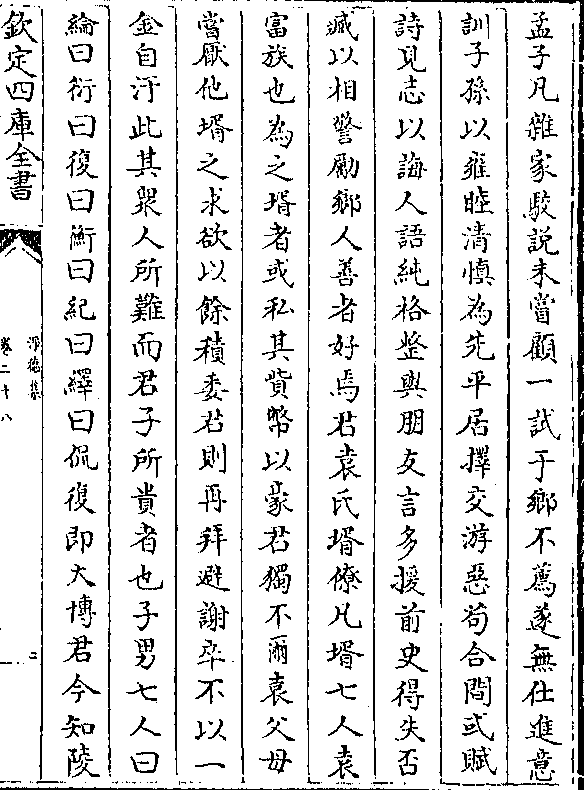 孟子凡雜家駁説未嘗顧一試于鄉不薦遂無仕進意
訓子孫以雍睦清慎為先平居擇交游惡苟合間或賦
詩見志以誨人語純格整與朋友言多援前史得失否
臧以相警勵鄉人善者好焉君袁氏壻僚凡壻七人袁
富族也為之壻者或私其貲幣以蒙君獨不爾袁父母
當厭他壻之求欲以餘積委君則再拜避謝卒不以一
金自汙此其衆人所難而君子所貴者也子男七人曰
綸曰衍曰復曰衡曰紀曰繹曰侃復即大博君今知陵
欽定四庫全書
淨德集
卷二十八
二